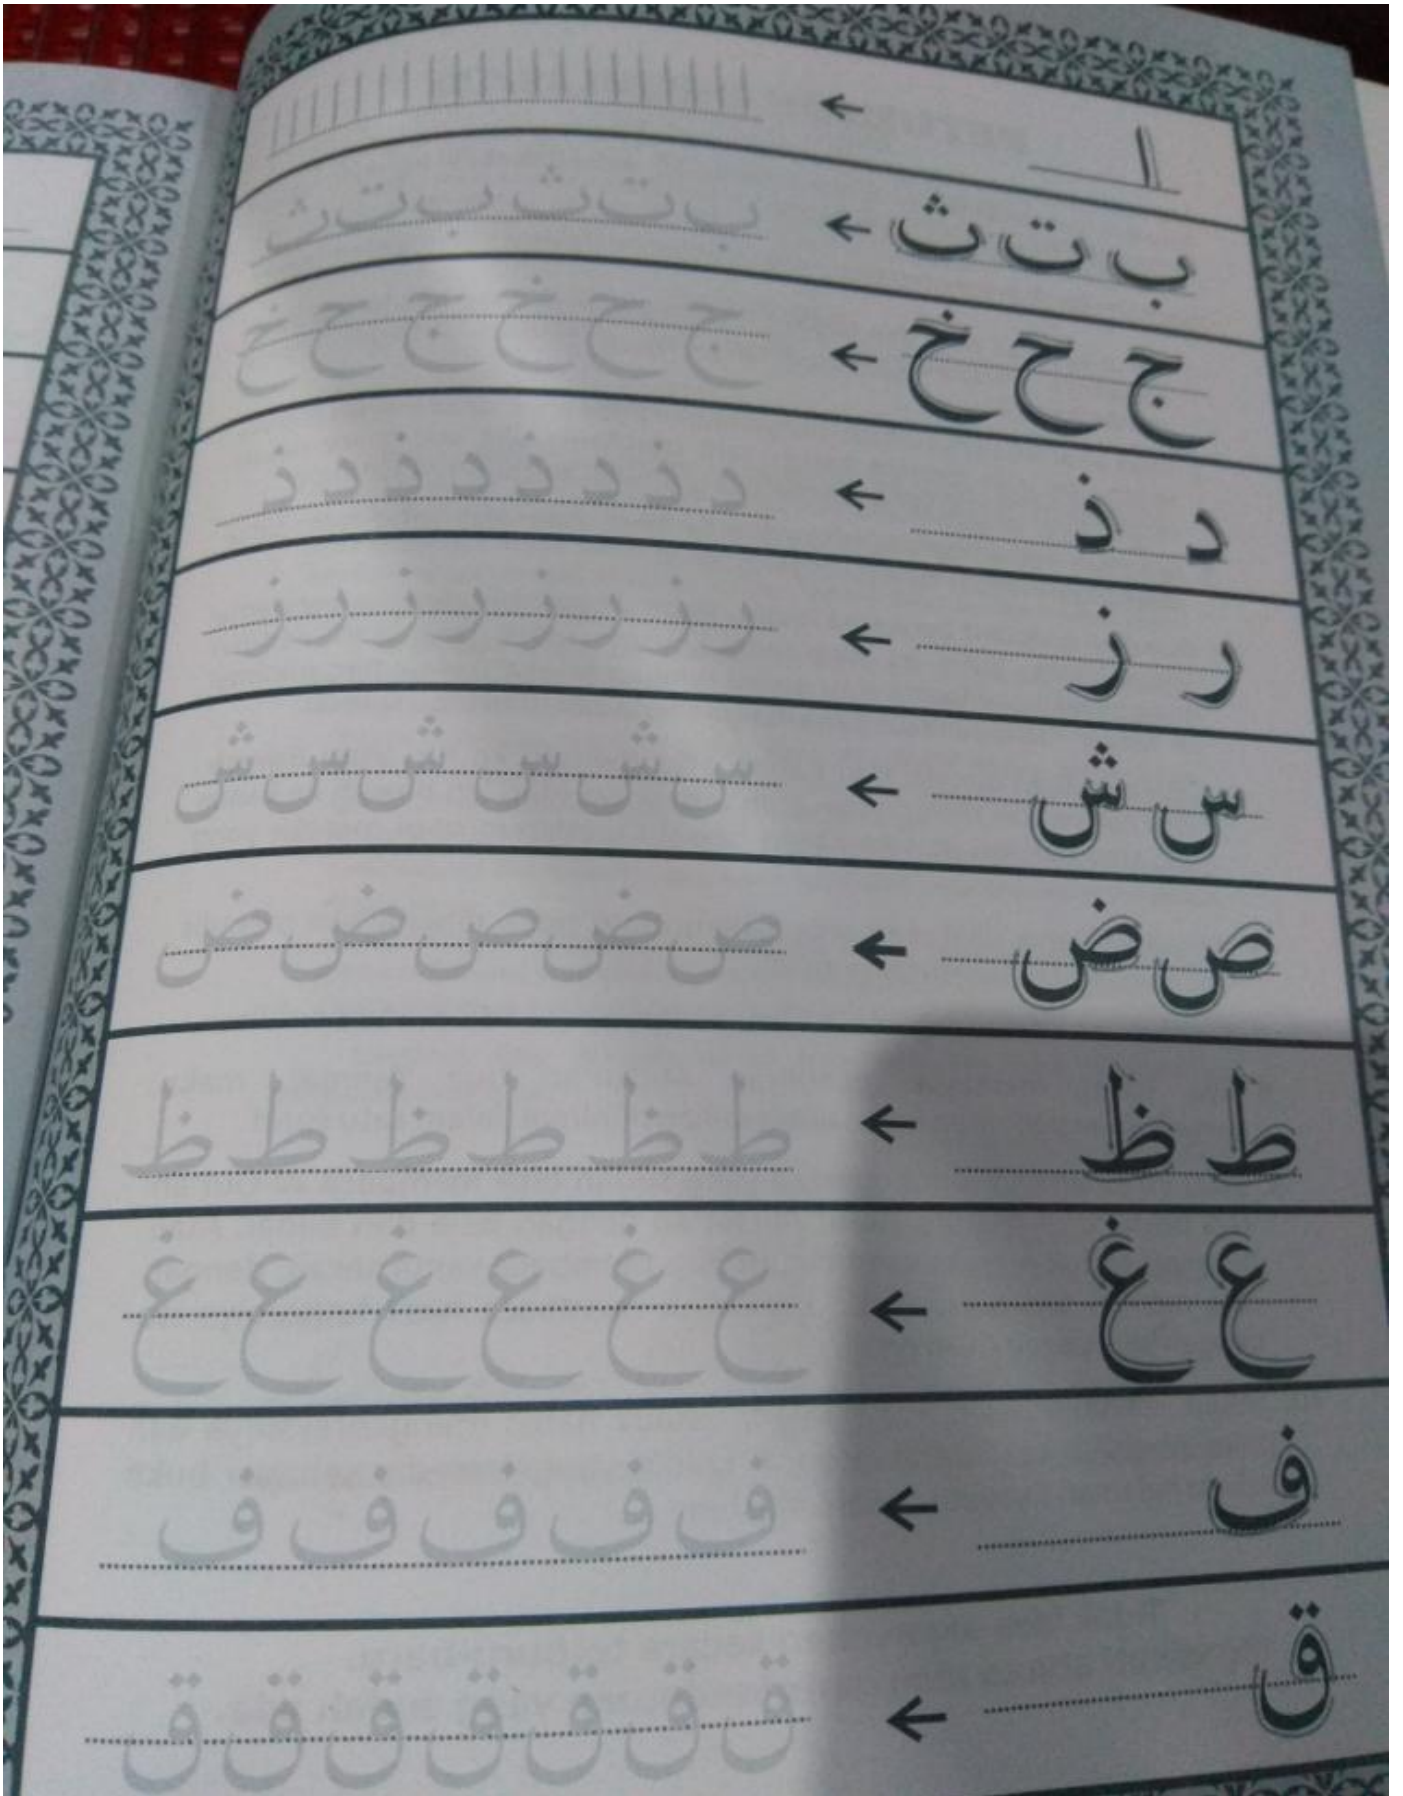 ا ← ا ا ا ا ا ا ا ا ا ا ا ا ا ا ا ا ا ا ا ا ا
ب ت ث ← ب ت ث ب ت ث
ج ح خ ← ج ح خ ج ح خ
د ذ ← د ذ د ذ د ذ د ذ
ر ز ← ر ز ر ز ر ز ر ز
س ش ← س ش س ش س ش
ص ض ← ص ض ص ض ض
ط ظ ← ط ظ ط ظ ط ظ
ع غ ← ع غ ع غ ع غ
ف ← ف ف ف ف ف
ق ← ق ق ق ق ق ق ق